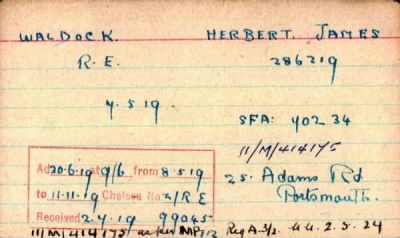 WALDOCK. HERBERT. JAMES
R.E. 286219
4.5.19
SFA: 402 34
11/M/414175
Ad 20-6-19 at 9/6 from 8.5.19
25. Adams Rd
to 11-11-19 Chelsea No 2/RE
Portsmouth.
Received 2.7.19 99045
11/M/414175 as per MP 172 Reg A.3/2. 2.5.24